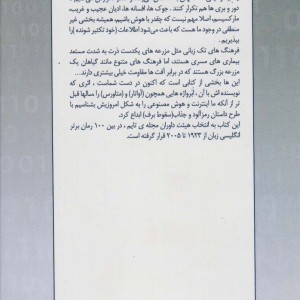 دور و بری ها هم تکرار کنند . جوک ها، افسانه ها، ادیان عجیب و غریب،
مارکسیسم. اصلا مهم نیست که چقدر با هوش باشیم، همیشه بخشی غیر
منطقی در وجود ما هست که باعث می‌شود اطلاعات (خود تکثیر شونده) را
بپذیریم .
فرهنگ های تک زبانی مثل مزرعه های یکدست ذرت به شدت مستعد
بیماری های مسری هستند، اما فرهنگ های متنوع مانند گیاهان یک
مزرعه بزرگ هستند که در برابر آفت ها مقاومت خیلی بیشتری دارند....
این ها بخشی از کتابی است که اکنون در دست شماست ، اثری که
نویسنده اش با آن ، (پروژه) هایی همچون (آواتار) و (متاورس) را سالها قبل
تر از آنکه ما اینترنت و هوش مصنوعی را به شکل امروزیش بشناسیم با
طرح داستان رمزآلود و جذاب(سقوط برف) ابداع کرد.
این کتاب به انتخاب هیئت داوران مجله ی تایم ، در بین ۱۰۰ رمان برتر
انگلیسی زبان از ۱۹۲۳ تا ۲۰۰۵ قرار گرفته است.